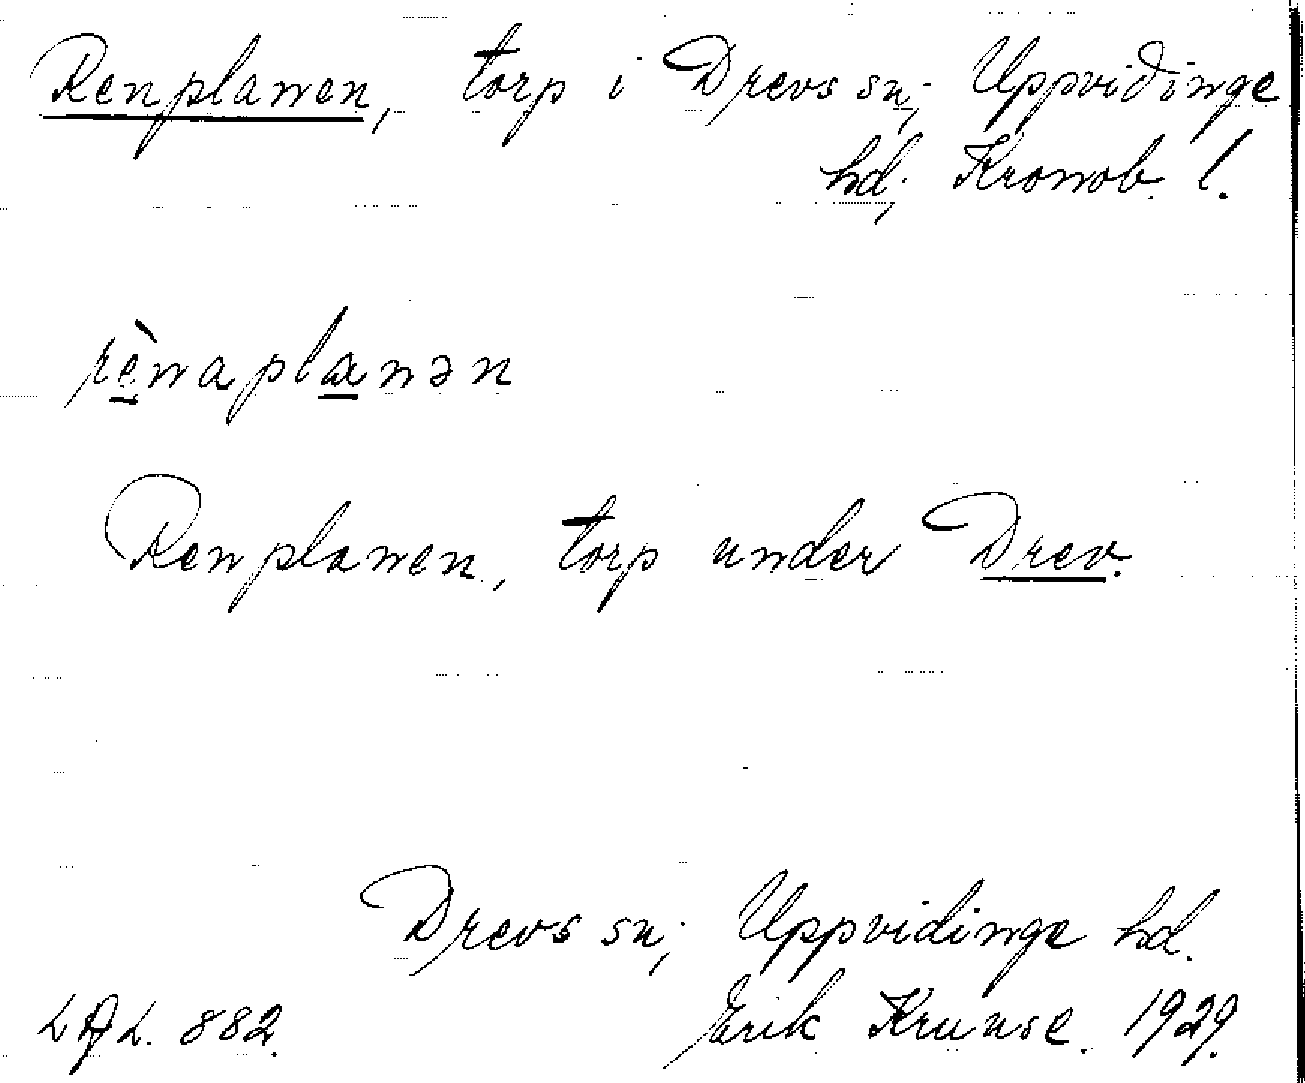 Renplanen, torp i Drevs sn; Uppvidinge
hd; Kronob. l.
rènaplanən
Renplanen, torp under Drev.
Drevs sn; Uppvidinge hd.
LAL. 882. Erik Krunse. 1929.